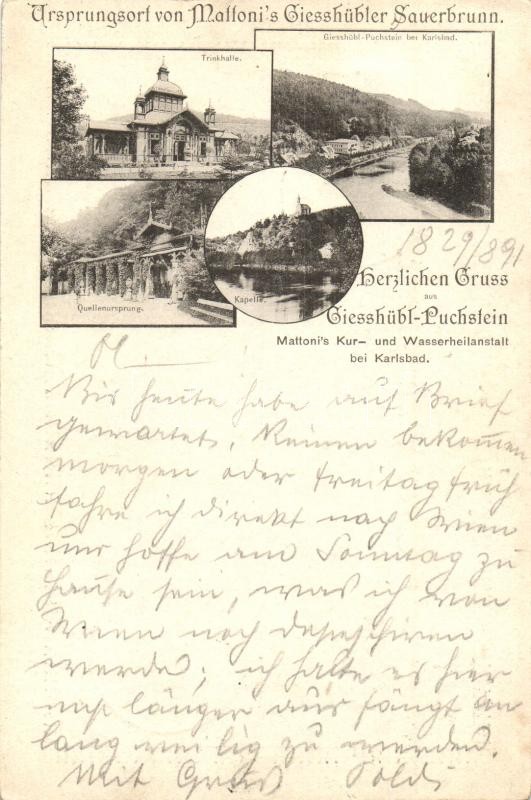 Ursprungsort von Mattoni's Giesshübler Sauerbrunn.
Trinkhalle.
Giesshübl-Puchstein bei Karlsbad.
Quellenursprung.
Kapelle.
Herzlichen Gruss
aus
Giesshübl-Puchstein
Mattoni's Kur- und Wasserheilanstalt
bei Karlsbad.
Bis heute habe auf Brief
gewartet, keinen bekommen
morgen oder Freitag früh
fahre ich direkt nach Wien
und hoffe am Sonntag zu
Hause sein, was ich von
Wien noch depeschiren
werde; ich halte es hier
länger aus fängt an
langweilig zu werden.
Mit Gruss Poldi